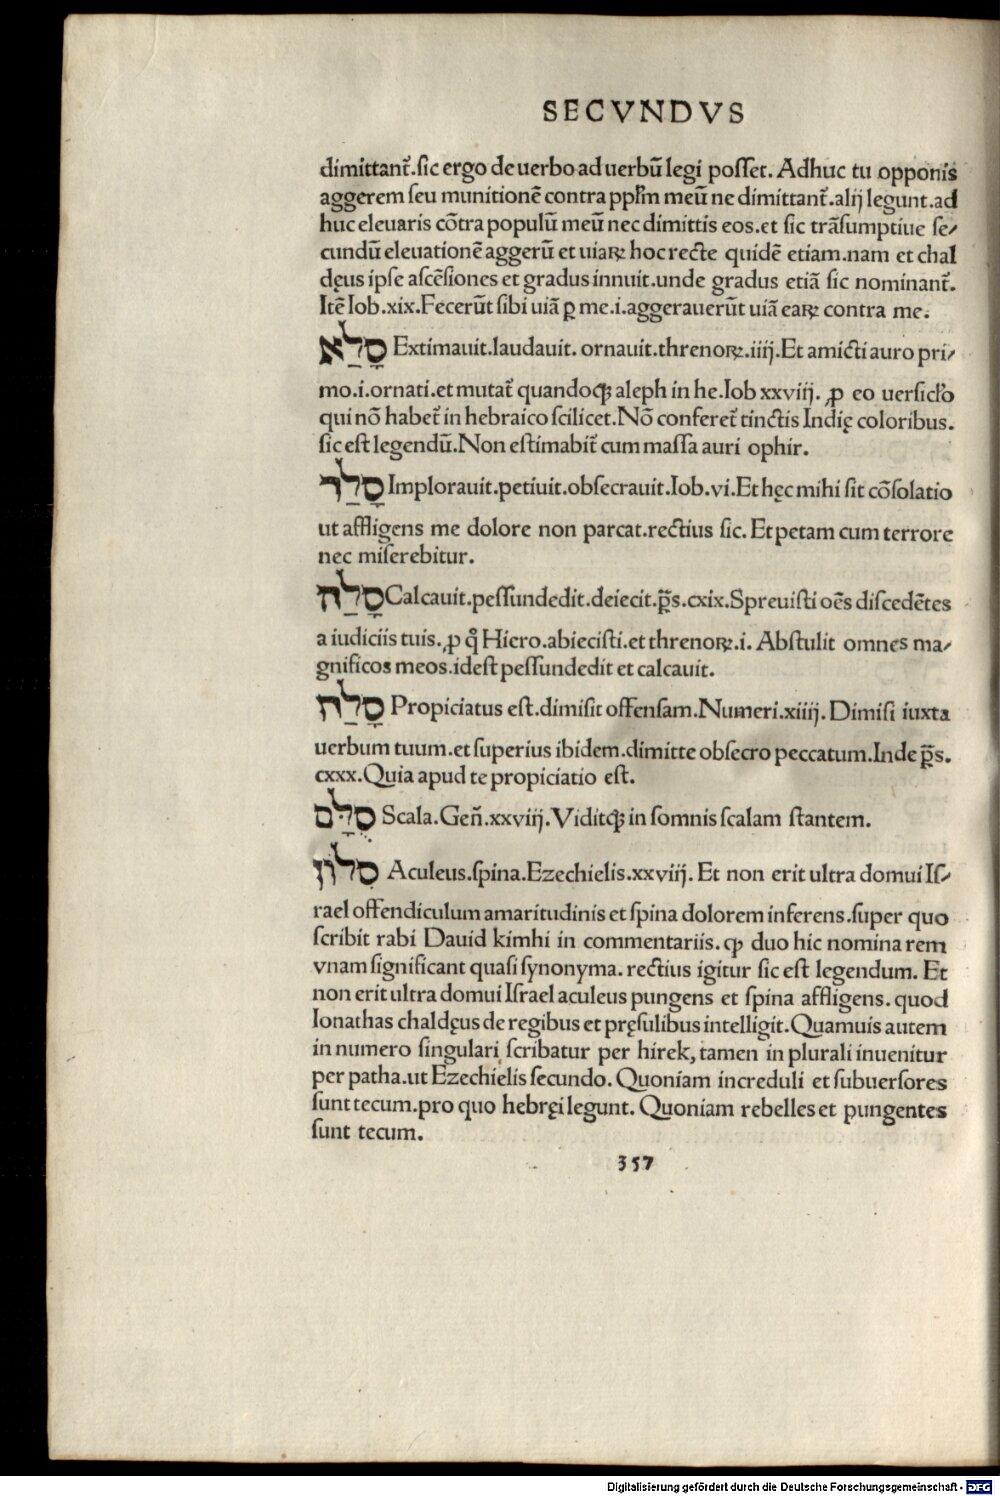 SECVNDVS
dimittant᷑.sic ergo de uerbo ad uerbū legi posset. Adhuc tu opponis
aggerem seu munitionē contra ppl̄m meū ne dimittant᷑.alij legunt.ad
huc eleuaris cōtra populū meū nec dimittis eos.et sic trāsumptiue se⸗
cundū eleuationē aggerū et uiaꝝ hoc recte quidē etiam.nam et chal
dęus ipse ascēsiones et gradus innuit.unde gradus etiā sic nominant᷑.
Itē Iob.xix.Fecerūt sibi uiā ꝑ me.i.aggerauerūt uiā eaꝝ contra me.
סָלַא Extimauit.laudauit. ornauit.threnoꝝ.iiij.Et amicti auro pri⸗
mo.i.ornati.et mutat᷑ quandoqꝫ aleph in he.Iob xxviij. ꝓ eo uersicl̓o
qui nō habet᷑ in hebraico scilicet.Nō conferet᷑ tinctis Indię coloribus.
sic est legendū.Non estimabit᷑ cum massa auri ophir.
סָלַד Implorauit.petiuit.obsecrauit.Iob.vi.Et hęc mihi sit cōsolatio
ut affligens me dolore non parcat.rectius sic. Et petam cum terrore
nec miserebitur.
סָלַה Calcauit.pessundedit.deiecit.p̄s.cxix.Spreuisti oēs discedētes
a iudiciis tuis.ꝓ q̊ Hiero.abiecisti.et threnoꝝ.i. Abstulit omnes ma⸗
gnificos meos.idest pessundedit et calcauit.
סָלַח Propiciatus est.dimisit offensam.Numeri.xiiij. Dimisi iuxta
uerbum tuum.et superius ibidem.dimitte obsecro peccatum.Inde p̄s.
cxxx.Quia apud te propiciatio est.
סֻלָּם Scala.Gen̄.xxviij.Viditqꝫ in somnis scalam stantem.
סִלוֹן Aculeus.spina.Ezechielis.xxviij. Et non erit ultra domui Is⸗
rael offendiculum amaritudinis et spina dolorem inferens.super quo
scribit rabi Dauid kimhi in commentariis.ꝙ duo hic nomina rem
vnam significant quasi synonyma. rectius igitur sic est legendum. Et
non erit ultra domui Israel aculeus pungens et spina affligens. quod
Ionathas chaldęus de regibus et pręsulibus intelligit.Quamuis autem
in numero singulari scribatur per hirek, tamen in plurali inuenitur
per patha.ut Ezechielis secundo. Quoniam increduli et subuersores
sunt tecum.pro quo hebręi legunt. Quoniam rebelles et pungentes
sunt tecum.
357
Digitalisierung gefördert durch die Deutsche Forschungsgemeinschaft - DFG